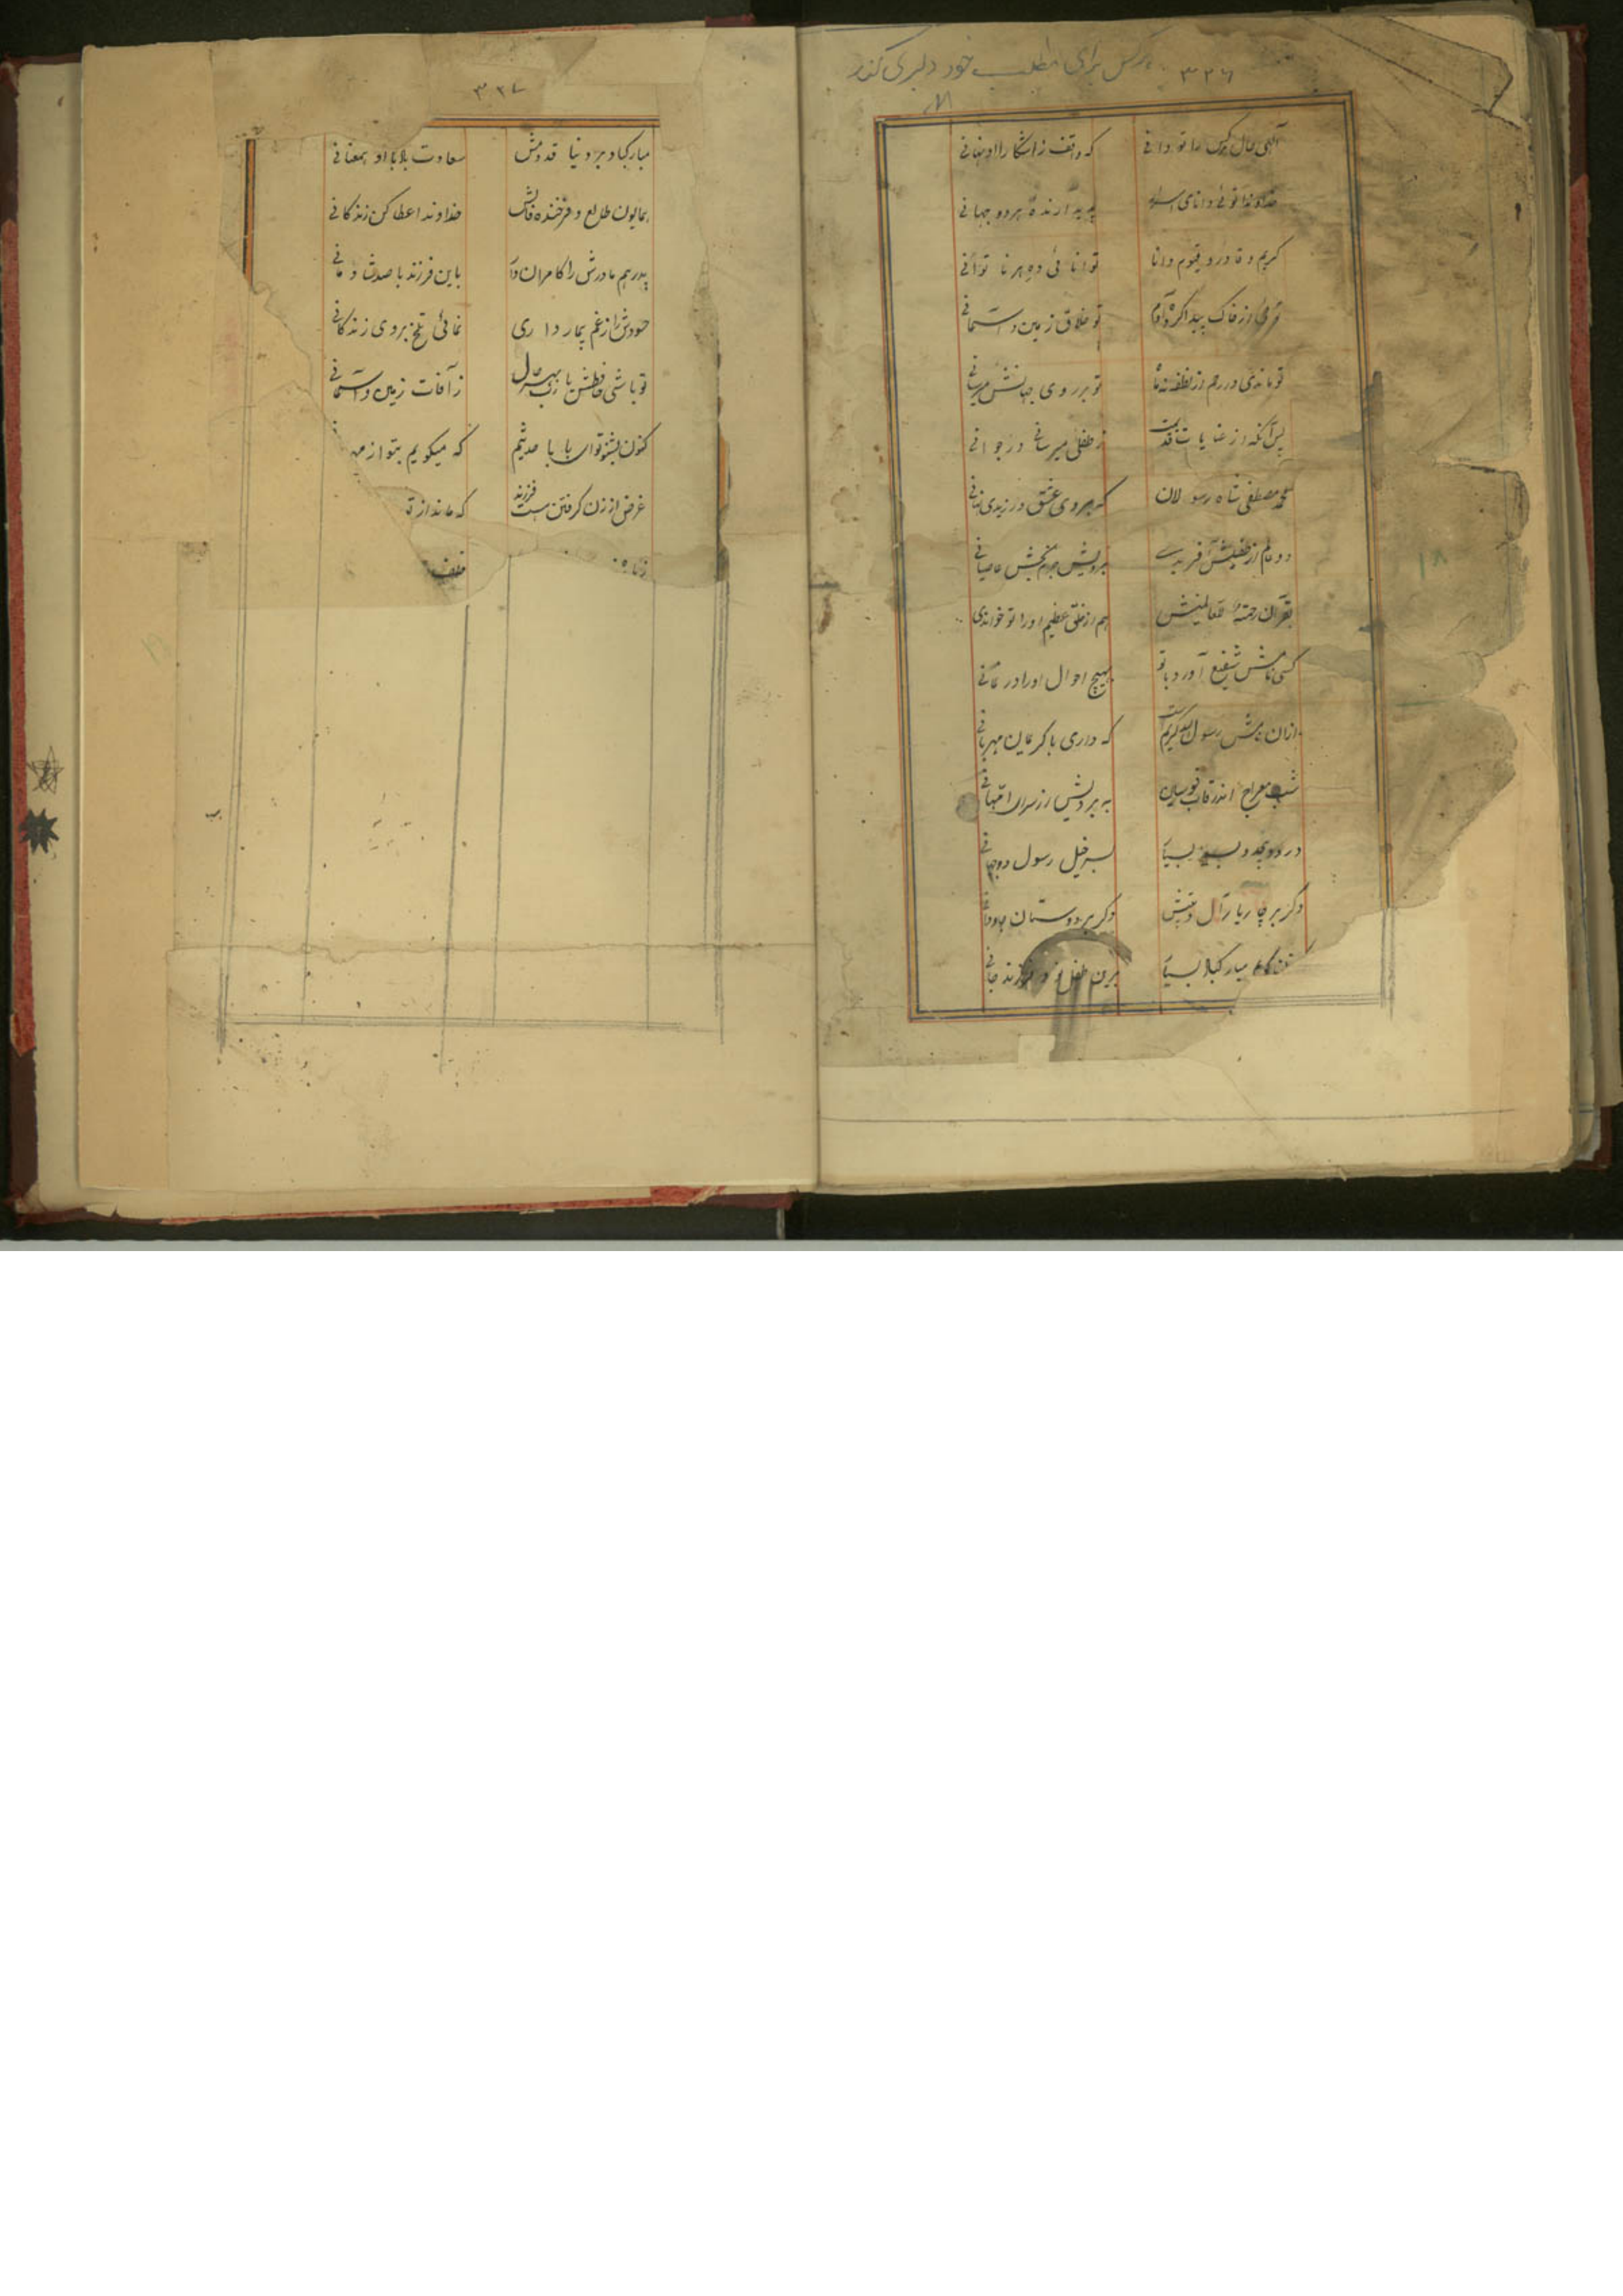 هرکس برای مطلب خود دلبری کند
۳۲۶
الهی حال هرکس را تو دانی که واقف ز آشکارا و نهانی
خداوندا توئی دانای اسرار پدیدارنده هر دو جهانی
کریم و قادر و قیوم و دانا توانائی ده هر ناتوانی
ز خاک پیدا کرده آدم تو خلاق زمین و آسمانی
در رحم از نطفه تو بر روی جهانش میرسانی
پس آنگه از عنایات ز طفلی میرسانی در جوانی
محمد مصطفی شاه رسولان که بر وی عشق ورزیدی نهانی
دو عالم از طفیلش آفریدی برویش جرم بخش عاصیانی
بقرآن رحمة للعالمینش هم از خلق عظیم او را تو خواندی
کسی نامش شفیع آورد با تو بهیچ احوال او را در نمانی
ازان نامش رسول الله کریم است که داری با کریمان مهربانی
شب معراج اندر قاب قوسین
درود بسیار بسرخیل رسول دو جهانی
دگر بر چار یار و آل و دگر بر دوستان جاودانی
مبارکباد بسیار برین طفل و فرزند جانی
۳۲۷
مبارکباد بر دنیا قدومش سعادت بادا با او بمعنانی
همایون طالع و فرخنده فالش خداوندا عطا کن زندگانی
پدر هم مادرش را کامران دار باین فرزند با صد شادمانی
حسودش را ز غم بیمار داری نمائی تلخ بر وی زندگانی
تو باشی حافظش یا رب بهر حال ز آفات زمین و آسمانی
کنون بشنو تو ای بابا حدیثم که میگویم بتو از
غرض از زن گرفتن هست فرزند که ماند از تو